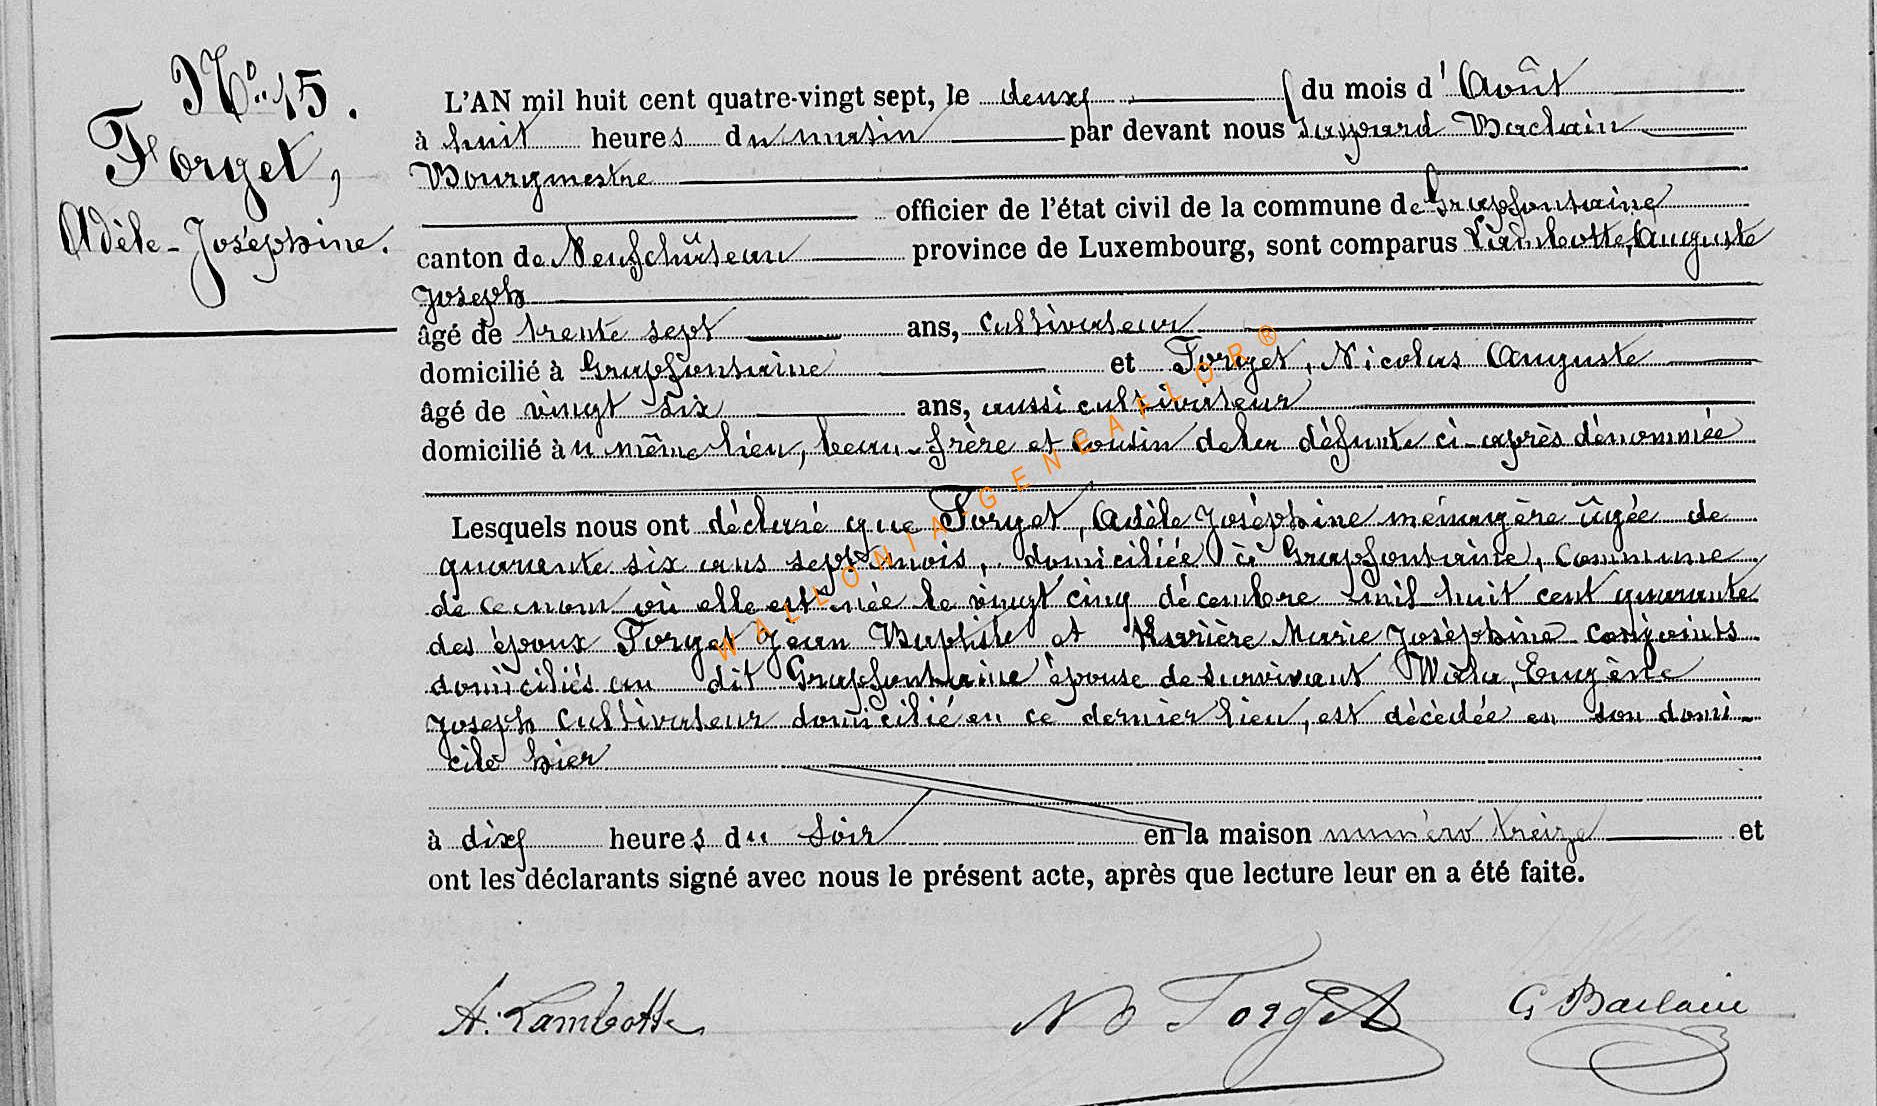 No 15.
Forget,
Adèle-Joséphine.
L'AN mil huit cent quatre-vingt sept, le deux du mois d'Août
à huit heures du matin par devant nous Gaspard Baclain
Bourgmestre
officier de l'état civil de la commune de Grapfontaine
canton de Neufchâteau province de Luxembourg, sont comparus Lambotte, Auguste
Joseph
âgé de trente sept ans, cultivateur
domicilié à Grapfontaine et Forget, Nicolas Auguste
âgé de vingt six ans, aussi cultivateur
domicilié au même lieu, beau-frère et cousin de la défunte ci-après dénommée
Lesquels nous ont déclaré que Forget, Adèle Joséphine ménagère âgée de
quarante six ans sept mois, domiciliée à Grapfontaine, commune
de ce nom où elle est née le vingt cinq décembre mil huit cent quarante
des époux Forget Jean Baptiste et Marie Joséphine conjoints
domiciliés au dit Grapfontaine épouse de survivant Eugène
Joseph cultivateur domicilié en ce dernier lieu, est décédée en son domi-
cile hier
à dix heures du soir en la maison numéro treize et
ont les déclarants signé avec nous le présent acte, après que lecture leur en a été faite.
A. Lambotte N A Forget G Baclain
WALLONIA GENEAFLOR®